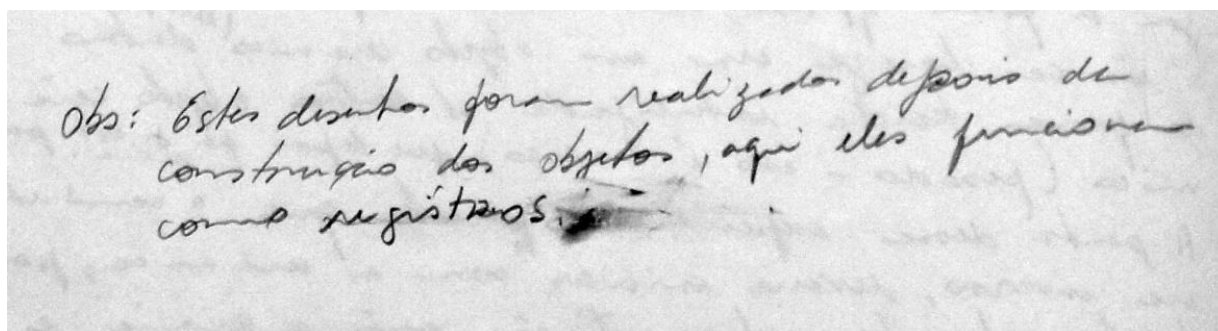 Obs: Estes desenhos foram realizados depois da
construção dos objetos, aqui eles funcionam
como registros.